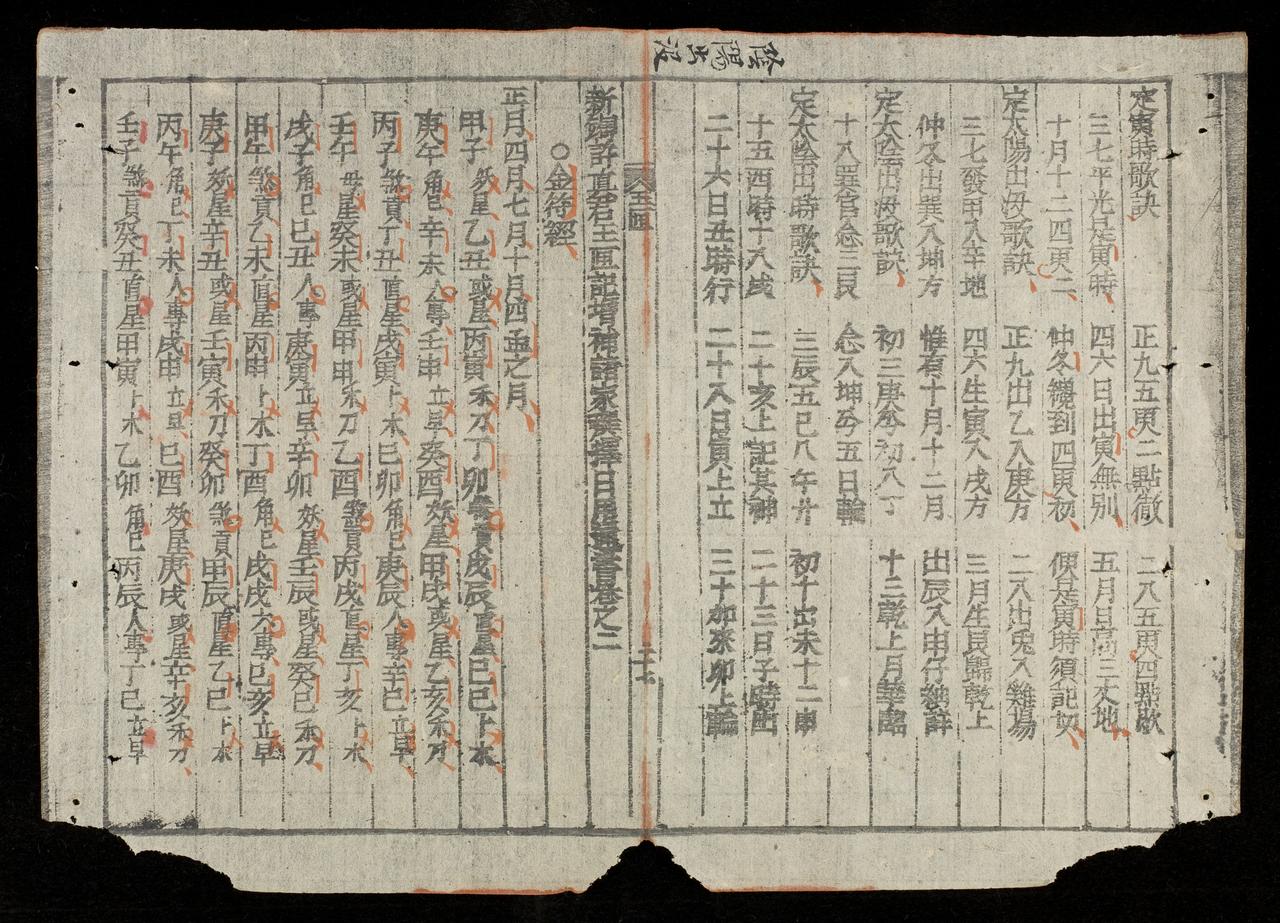 陰陽出没
定寅時歌訣 正九五更二點徹 二八五更四點歇
三七平光是寅時 四六日出寅無別 五月日高三丈地
十月十二四更二 仲冬纔到四更初 便是寅時須記切
定太陽出没歌訣 正九出乙入庚方 二八出兎入雞場
三七發甲入辛地 四六生寅入戌方 三月生艮歸乾上
仲冬出巽入坤方 惟有十月十二月 出辰入申仔細詳
定太陰出没歌訣 初三庚兮初八丁 十三乾上月華臨
十八巽宮念三艮 念八坤兮五日輪
定太陰出時歌訣 三辰五巳八午廾 初十出未十二申
十五酉時十八戌 二十亥上記其神 二十三日子時出
二十六日丑時行 二十八日寅上立 三十加來卯上輪
八五匣
二十七
新鐫許真君玉匣記增補諸家選擇日用通書卷之二
○金符經
正月四月七月十月四孟之月
甲子 妖星 乙丑 或星 丙寅 禾刀 丁卯 煞貢 戊辰 直星 己巳 卜木
庚午 角巳 辛未 人專 壬申 立早 癸酉 妖星 甲戌 或星 乙亥 禾刀
丙子 煞貢 丁丑 直星 戊寅 卜木 己卯 角巳 庚辰 人專 辛巳 立早
壬午 妖星 癸未 或星 甲申 禾刀 乙酉 煞貢 丙戌 直星 丁亥 卜木
戊子 角巳 己丑 人專 庚寅 立早 辛卯 妖星 壬辰 或星 癸巳 禾刀
甲午 煞貢 乙未 直星 丙申 卜木 丁酉 角巳 戊戌 六專 己亥 立早
庚子 妖星 辛丑 或星 壬寅 禾刀 癸卯 煞貢 甲辰 直星 乙巳 卜木
丙午 角巳 丁未 人專 戊申 立早 己酉 妖星 庚戌 或星 辛亥 禾刀
壬子 煞貢 癸丑 直星 甲寅 卜木 乙卯 角巳 丙辰 人專 丁巳 立早